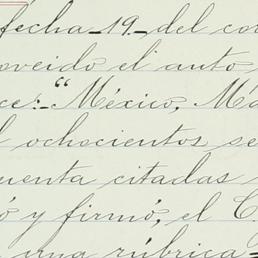 fecha 19 del cor
oveido el auto
ce:- "México, Ma
l ochocientos se
uenta citadas
ó y firmó, el C.
una rúbrica=